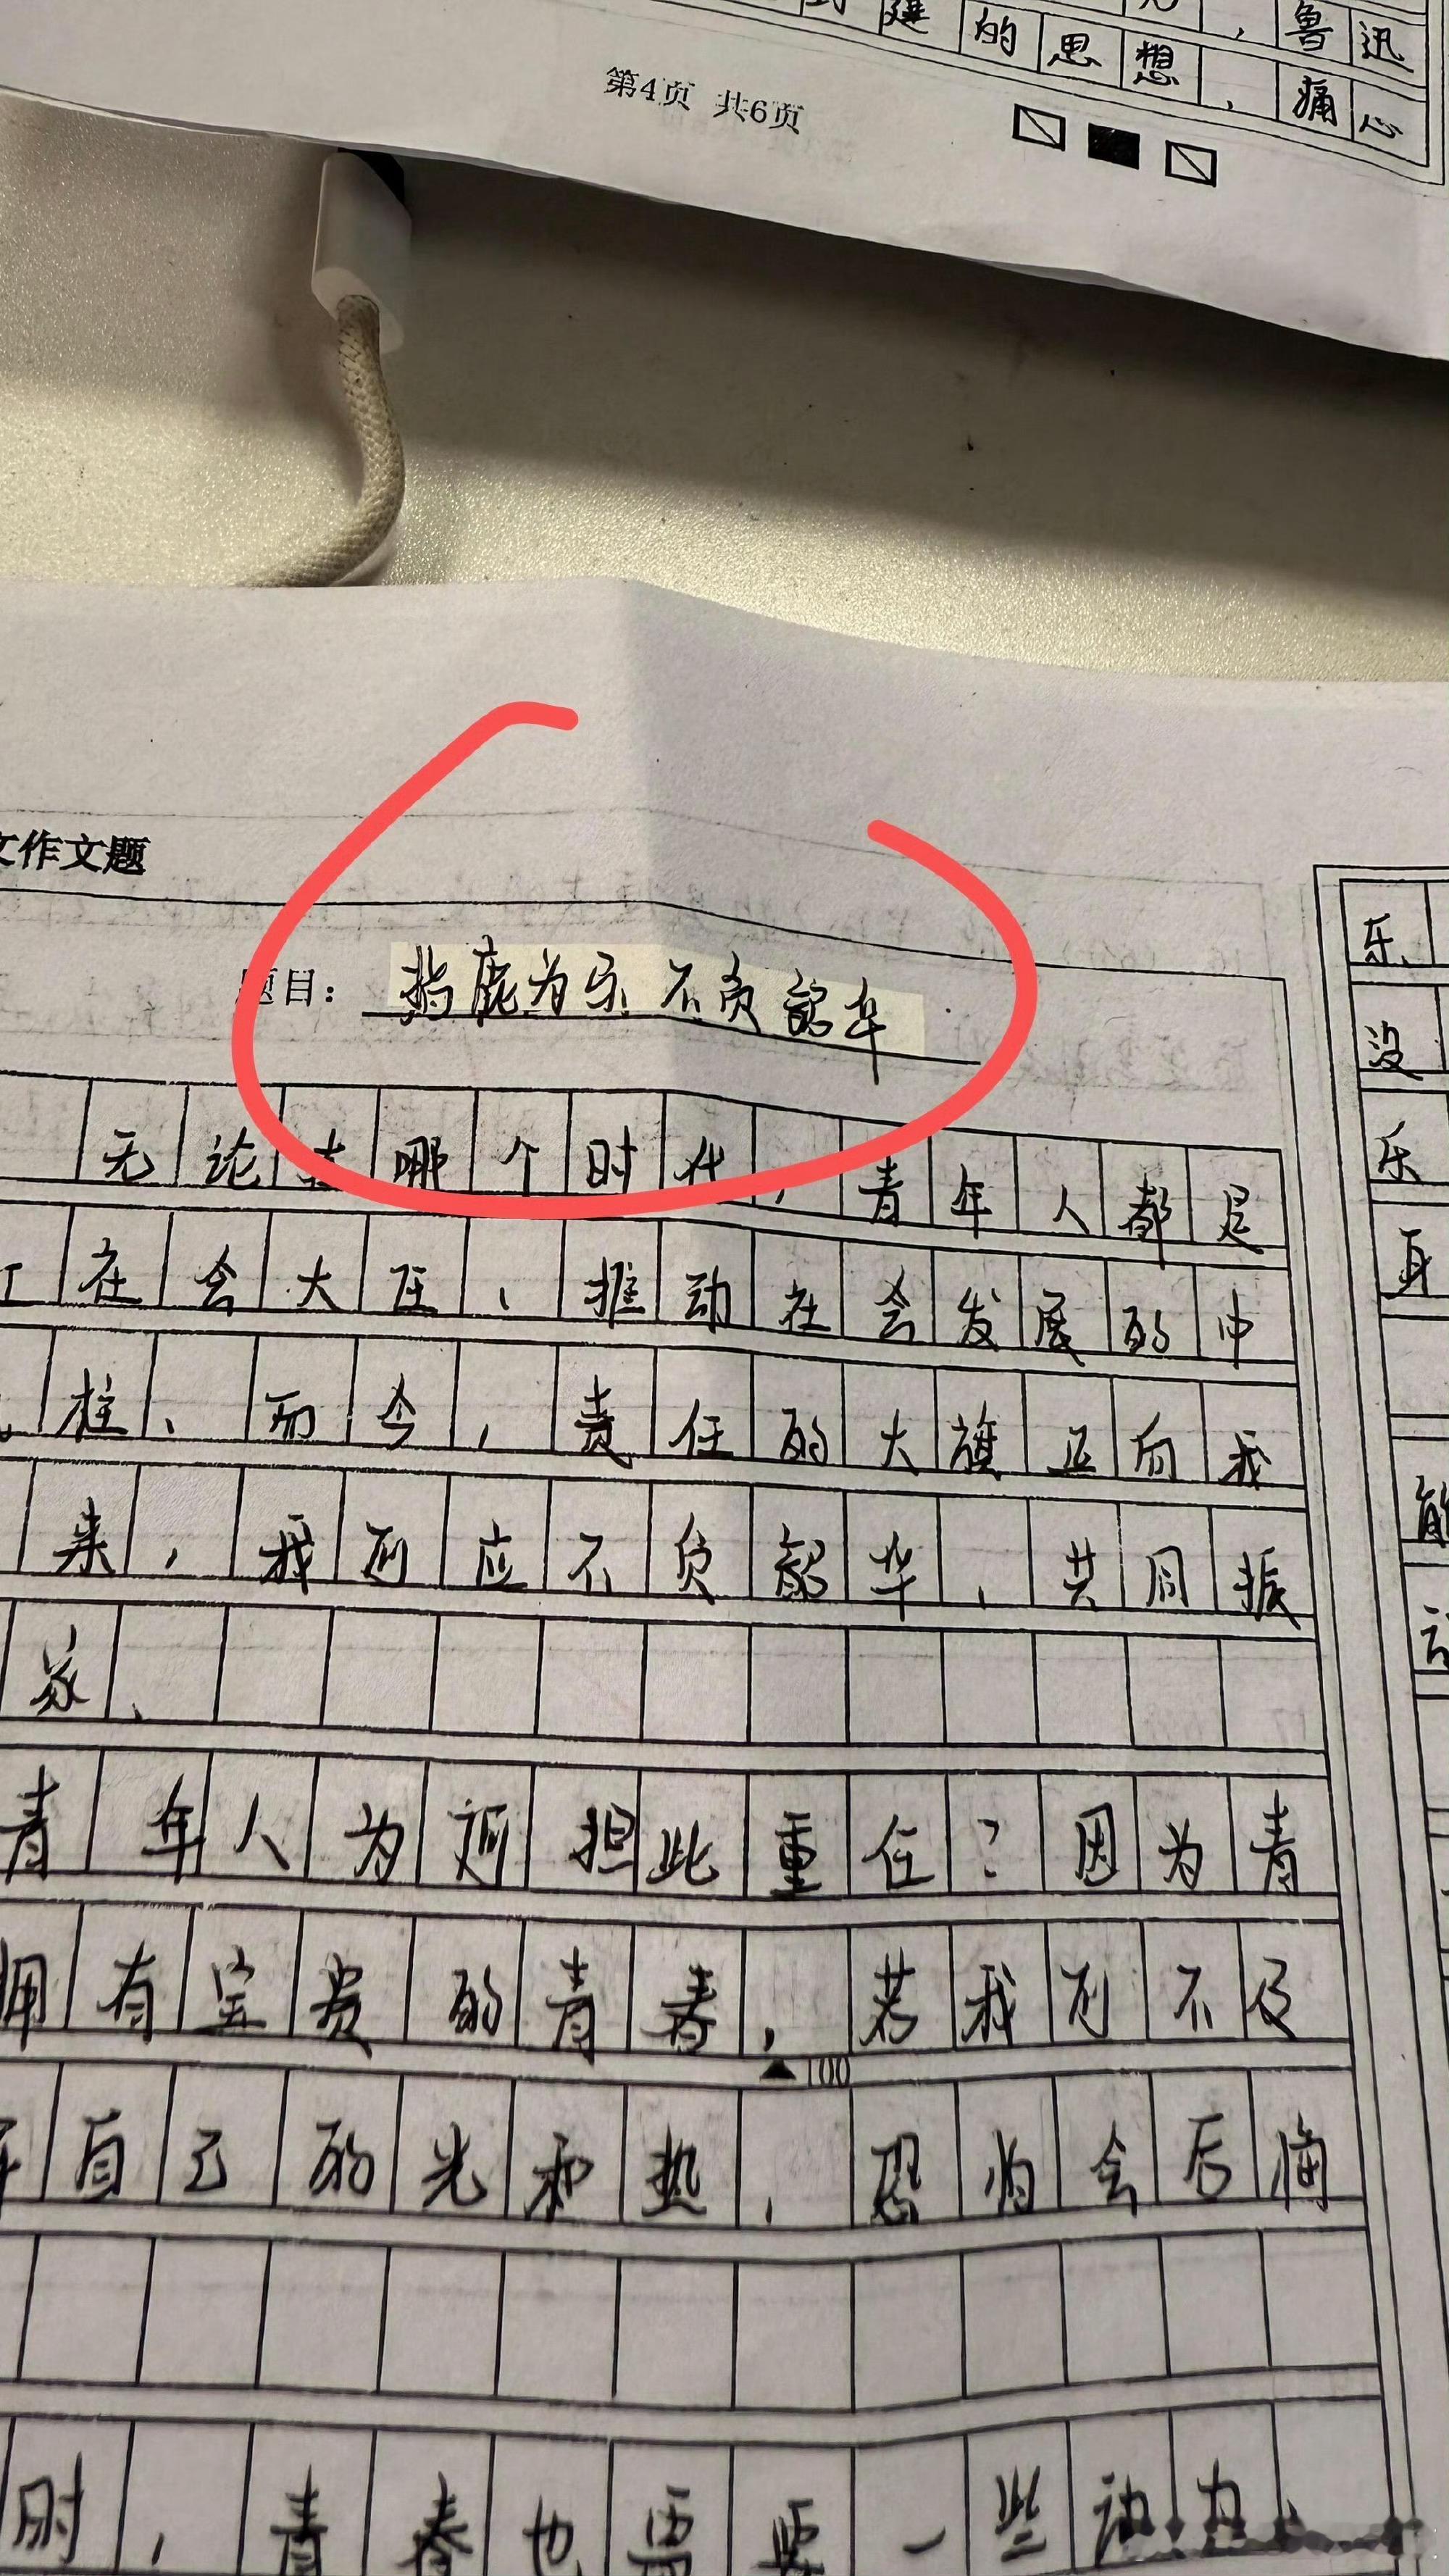 建的思想,鲁迅
,痛心
第4页 共6页
文作文题
题目: 指鹿为乐 不负韶华
无论在哪个时代,青年人都是
在会大压、推动社会发展的中
柱、而今,责任的大旗正向我
来,我们应不负韶华、共同振
家、
青年人为何担此重任?因为青
拥有宝贵的青春,若我们不及
100
自己的光和热,恐怕会后悔
时,青春也需要一些动力、
乐
没
乐